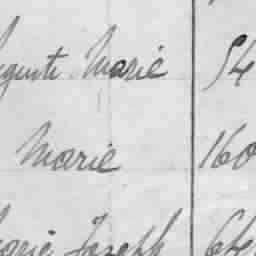 Auguste Marie 54
Marie 160
Marie Joseph